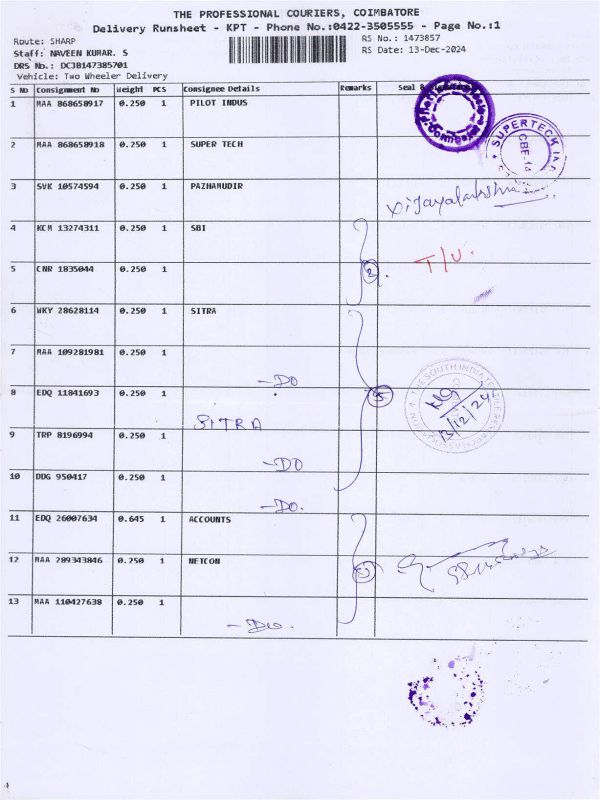 THE PROFESSIONAL COURIERS, COIMBATORE
Delivery Runsheet - KPT - Phone No.:0422-3505555 - Page No.:1
Route: SHARP
RS No.: 1473857
Staff: NAVEEN KUMAR. S
RS Date: 13-Dec-2024
DRS No.: DCJB147385701
Vehicle: Two Wheeler Delivery
S No Consignment No Weight PCS Consignee Details Remarks Seal &
1 MAA 868658917 0.250 1 PILOT INDUS
2 MAA 868658918 0.250 1 SUPER TECH
SUPERTECH
CBE-14
3 SVK 10574594 0.250 1 PAZHAMUDIR
Vijayalakshmi
4 KCM 13274311 0.250 1 SBI
5 CNR 1835044 0.250 1
2
T/U.
6 WKY 28628114 0.250 1 SITRA
7 MAA 109281981 0.250 1
-DO
8 EDQ 11841693 0.250 1
SITRA
5
THE SOUTH INDIA TEXTILE RESEARCH ASSOCIATION
13/12/24
9 TRP 8196994 0.250 1
-DO
10 DDG 950417 0.250 1
-DO.
11 EDQ 26007634 0.645 1 ACCOUNTS
12 MAA 289343846 0.250 1 NETCON
3
13 MAA 110427638 0.250 1
-DO.